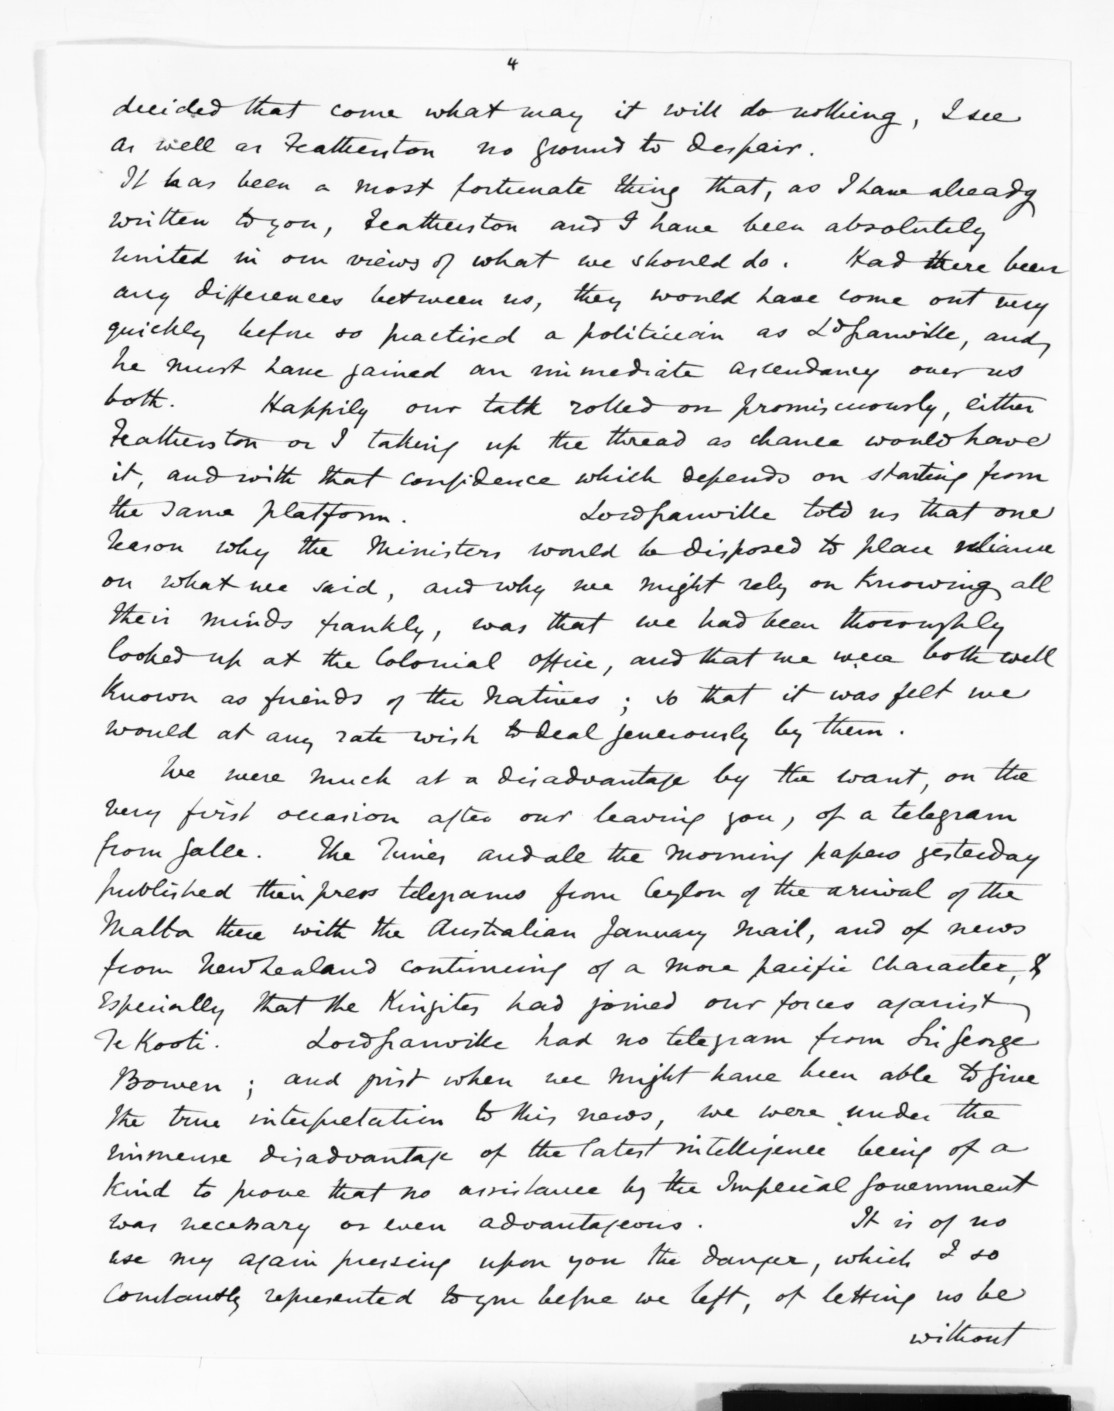 4
decided that come what may it will do nothing, I see
as well as Featherston no ground to despair.
It has been a most fortunate thing that, as I have already
written to you, Featherston and I have been absolutely
united in our views of what we should do. Had there been
any differences between us, they would have come out very
quickly before so practised a politician as Ld Granville, and
he must have gained an immediate ascendancy over us
both. Happily our talk rolled on promiscuously, either
Featherston or I taking up the thread as chance would have
it, and with that confidence which depends on starting from
the same platform. Lord Granville told us that one
reason why the Ministers would be disposed to place reliance
on what we said, and why we might rely on knowing all
their minds frankly, was that we had been thoroughly
looked up at the Colonial Office, and that we were both well
known as friends of the Natives; so that it was felt we
would at any rate wish to deal generously by them.
We were much at a disadvantage by the want, on the
very first occasion after our leaving you, of a telegram
from Galle. The Times and all the morning papers yesterday
published their press telegrams from Ceylon of the arrival of the
Malta there with the Australian January Mail, and of news
from New Zealand continuing of a more pacific character, &
especially that the Kingites had joined our forces against
Te Kooti. Lord Granville had no telegram from Sir George
Bowen; and just when we might have been able to give
the true interpretation to this news, we were under the
immense disadvantage of the latest intelligence being of a
kind to prove that no assistance by the Imperial Government
was necessary or even advantageous. It is of no
use my again pressing upon you the danger, which I so
constantly represented to you before we left, of letting us be
without